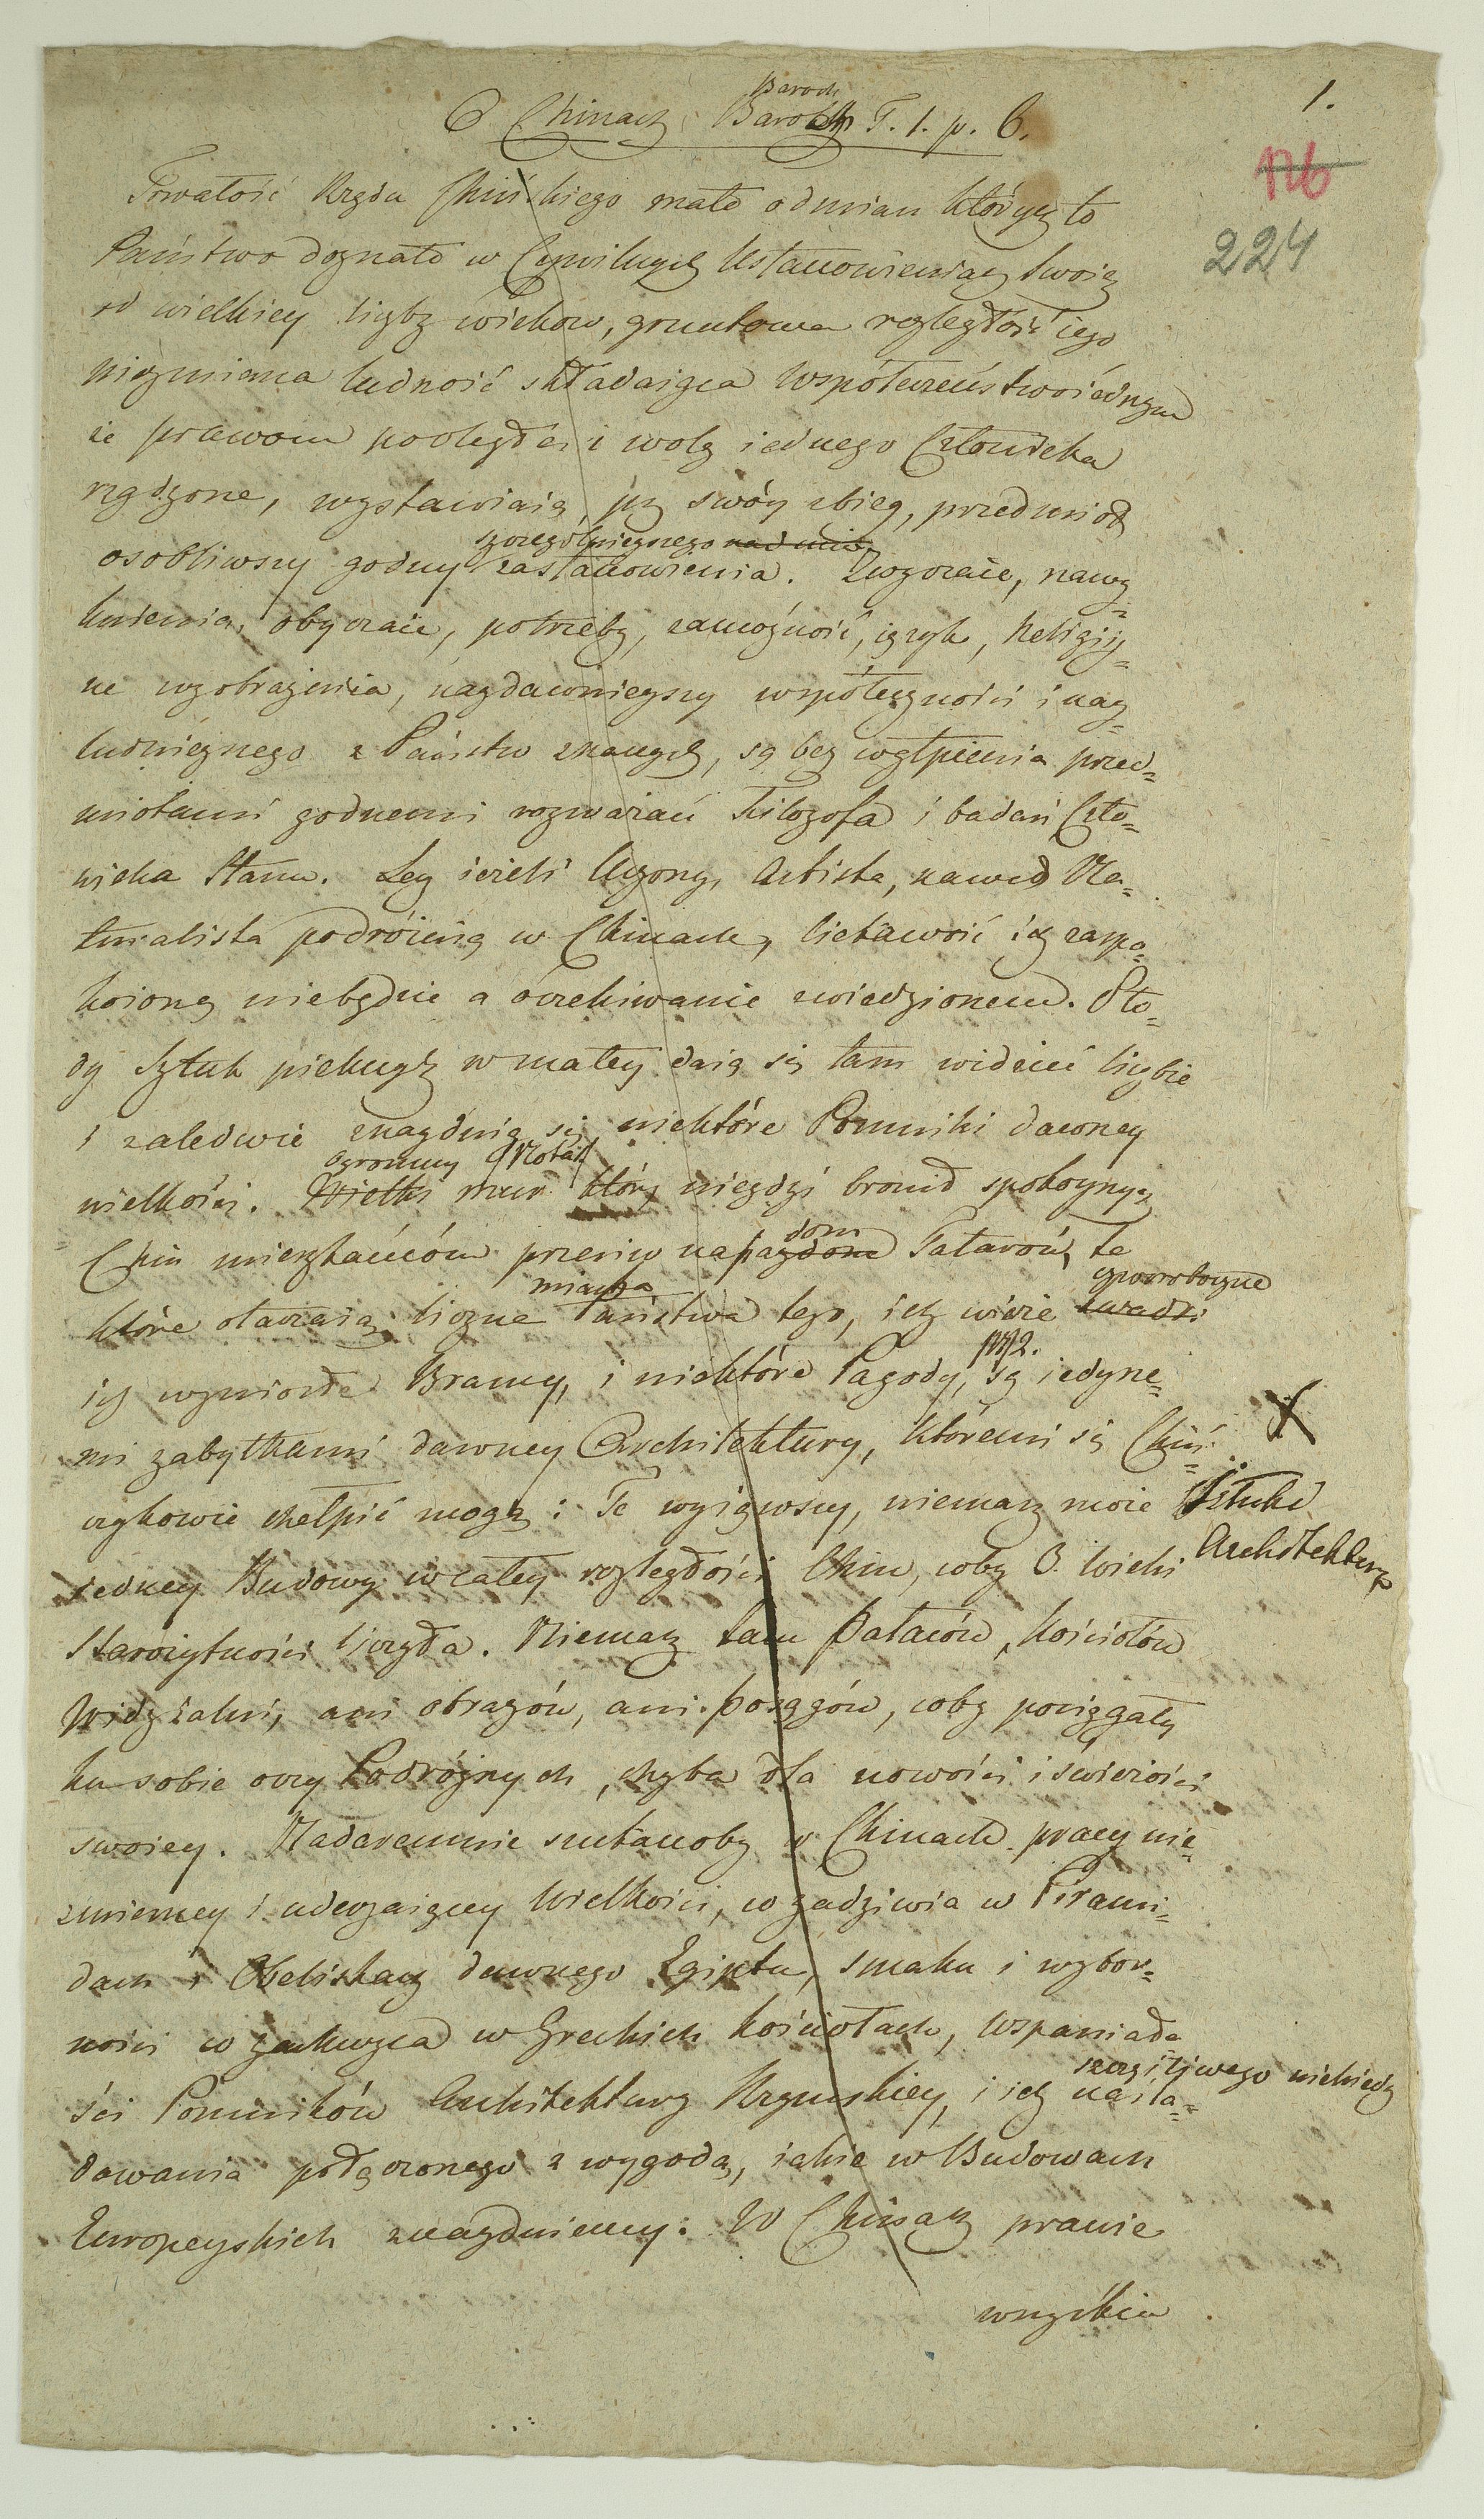 O Chinach Barow T. 1. p. 6.
1.
176
224
Trwałość Rządu Chińskiego mało odmian których to
Państwo doznało w Cywilnych Ustanowieniach swoich
od wielkiey liczby wieków, gruntowa rozległość iego
niezmierna ludność składaiąca Współeczeństwo iednym
że prawom podległe i wolą iednego Człowieka
rządzone, wystawiaią przez swóy zbieg, przedmiot
szczególnieyszego
osobliwszy godny zastanowienia. Zwyczaie, nawy=
knienia, obyczaie, potrzeby, zamożność, ięzyk, Religiy=
ne wyobrażenia, naydawnieyszy współeczności i nay=
ludnieyszego z Państw znanych, są bez wątpienia przed=
miotami godnemi rozważań Filozofa i badań Czło=
wieka Stanu. Lecz ieżeli Uczony, Artista, nawet Na=
turalista podróżuią w Chinach, ciekawość ich zaspo=
koioną niebędzie a oczekiwanie zwiedzionem. Pło=
dy Sztuk pięknych w małey daią się tam widzieć liczbie
i zaledwie znayduią się niektóre Pomniki dawney
Ogromny (Nota)
wielkości. Wielki mur który niegdyś bronił spokoynych
dom
Chin mieszkańców przeciw napaydom Tatarów, te
miasta czworoboczne
które otaczaią liczne Państwa tego, ich wieże
ich wyniosłe Bramy, i niektóre Pagody, są iedyne=
mi zabytkami dawney Architektury, któremi się Chiń=
czykowie chełpić mogą: Te wyiąwszy, niemasz może
Sztuki
Architektury
iedney Budowy w całey rozległości Chin, coby 3. wieki
Starożytności liczyła. Niemasz tam Pałaców, Kościołów
Widzialni, ani obrazów, ani posągów, coby pociągały
ku sobie oczy Podróżnych, chyba dla nowości i świeżości
swoiey. Nadaremnie szukanoby w Chinach pracy nie=
zmierney i uderzaiącey Wielkości, co zadziwia w Pirami=
dach i Obeliskach dawnego Egiptu, smaku i wybor=
ności co zachwyca w Greckich Kościołach, Wspaniało
szczęśliwego niekiedy
ści Pomników Architektury Rzymskiey, i ich naśla=
dowania połączonego z wygodą, iakie w Budowach
Europeyskich znayduiemy. W Chinach prawie
wszystkie